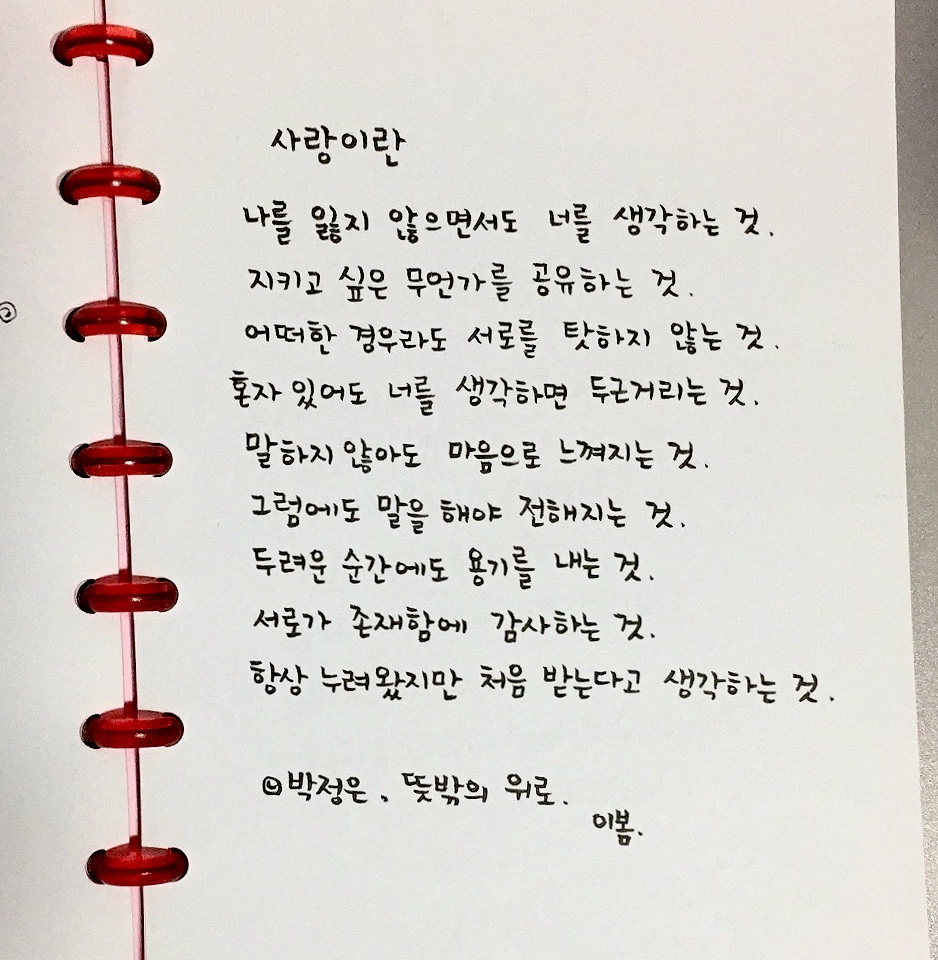 사랑이란
나를 잃지 않으면서도 너를 생각하는 것.
지키고 싶은 무언가를 공유하는 것.
어떠한 경우라도 서로를 탓하지 않는 것.
혼자 있어도 너를 생각하면 두근거리는 것.
말하지 않아도 마음으로 느껴지는 것.
그럼에도 말을 해야 전해지는 것.
두려운 순간에도 용기를 내는 것.
서로가 존재함에 감사하는 것.
항상 누려왔지만 처음 받는다고 생각하는 것.
박정은, 뜻밖의 위로.
이봄.